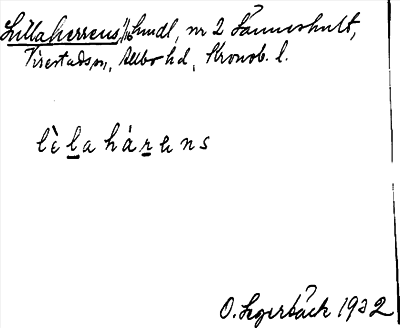 Lillaherrens, lhndl, nr 2 Sännershult,
Virestads sn, Allbo hd, Kronob. l.
lèlaháre​ns
O. Segerbäck 1932